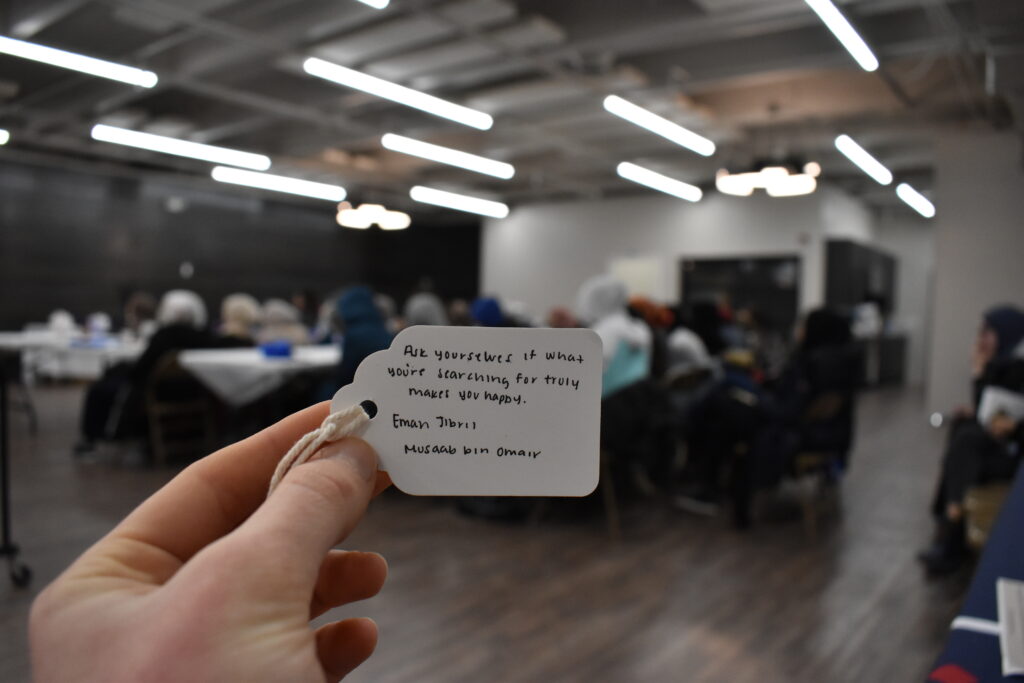 Ask yourselves if what
you're searching for truly
makes you happy.
Eman Jibril
Musaab bin Omair